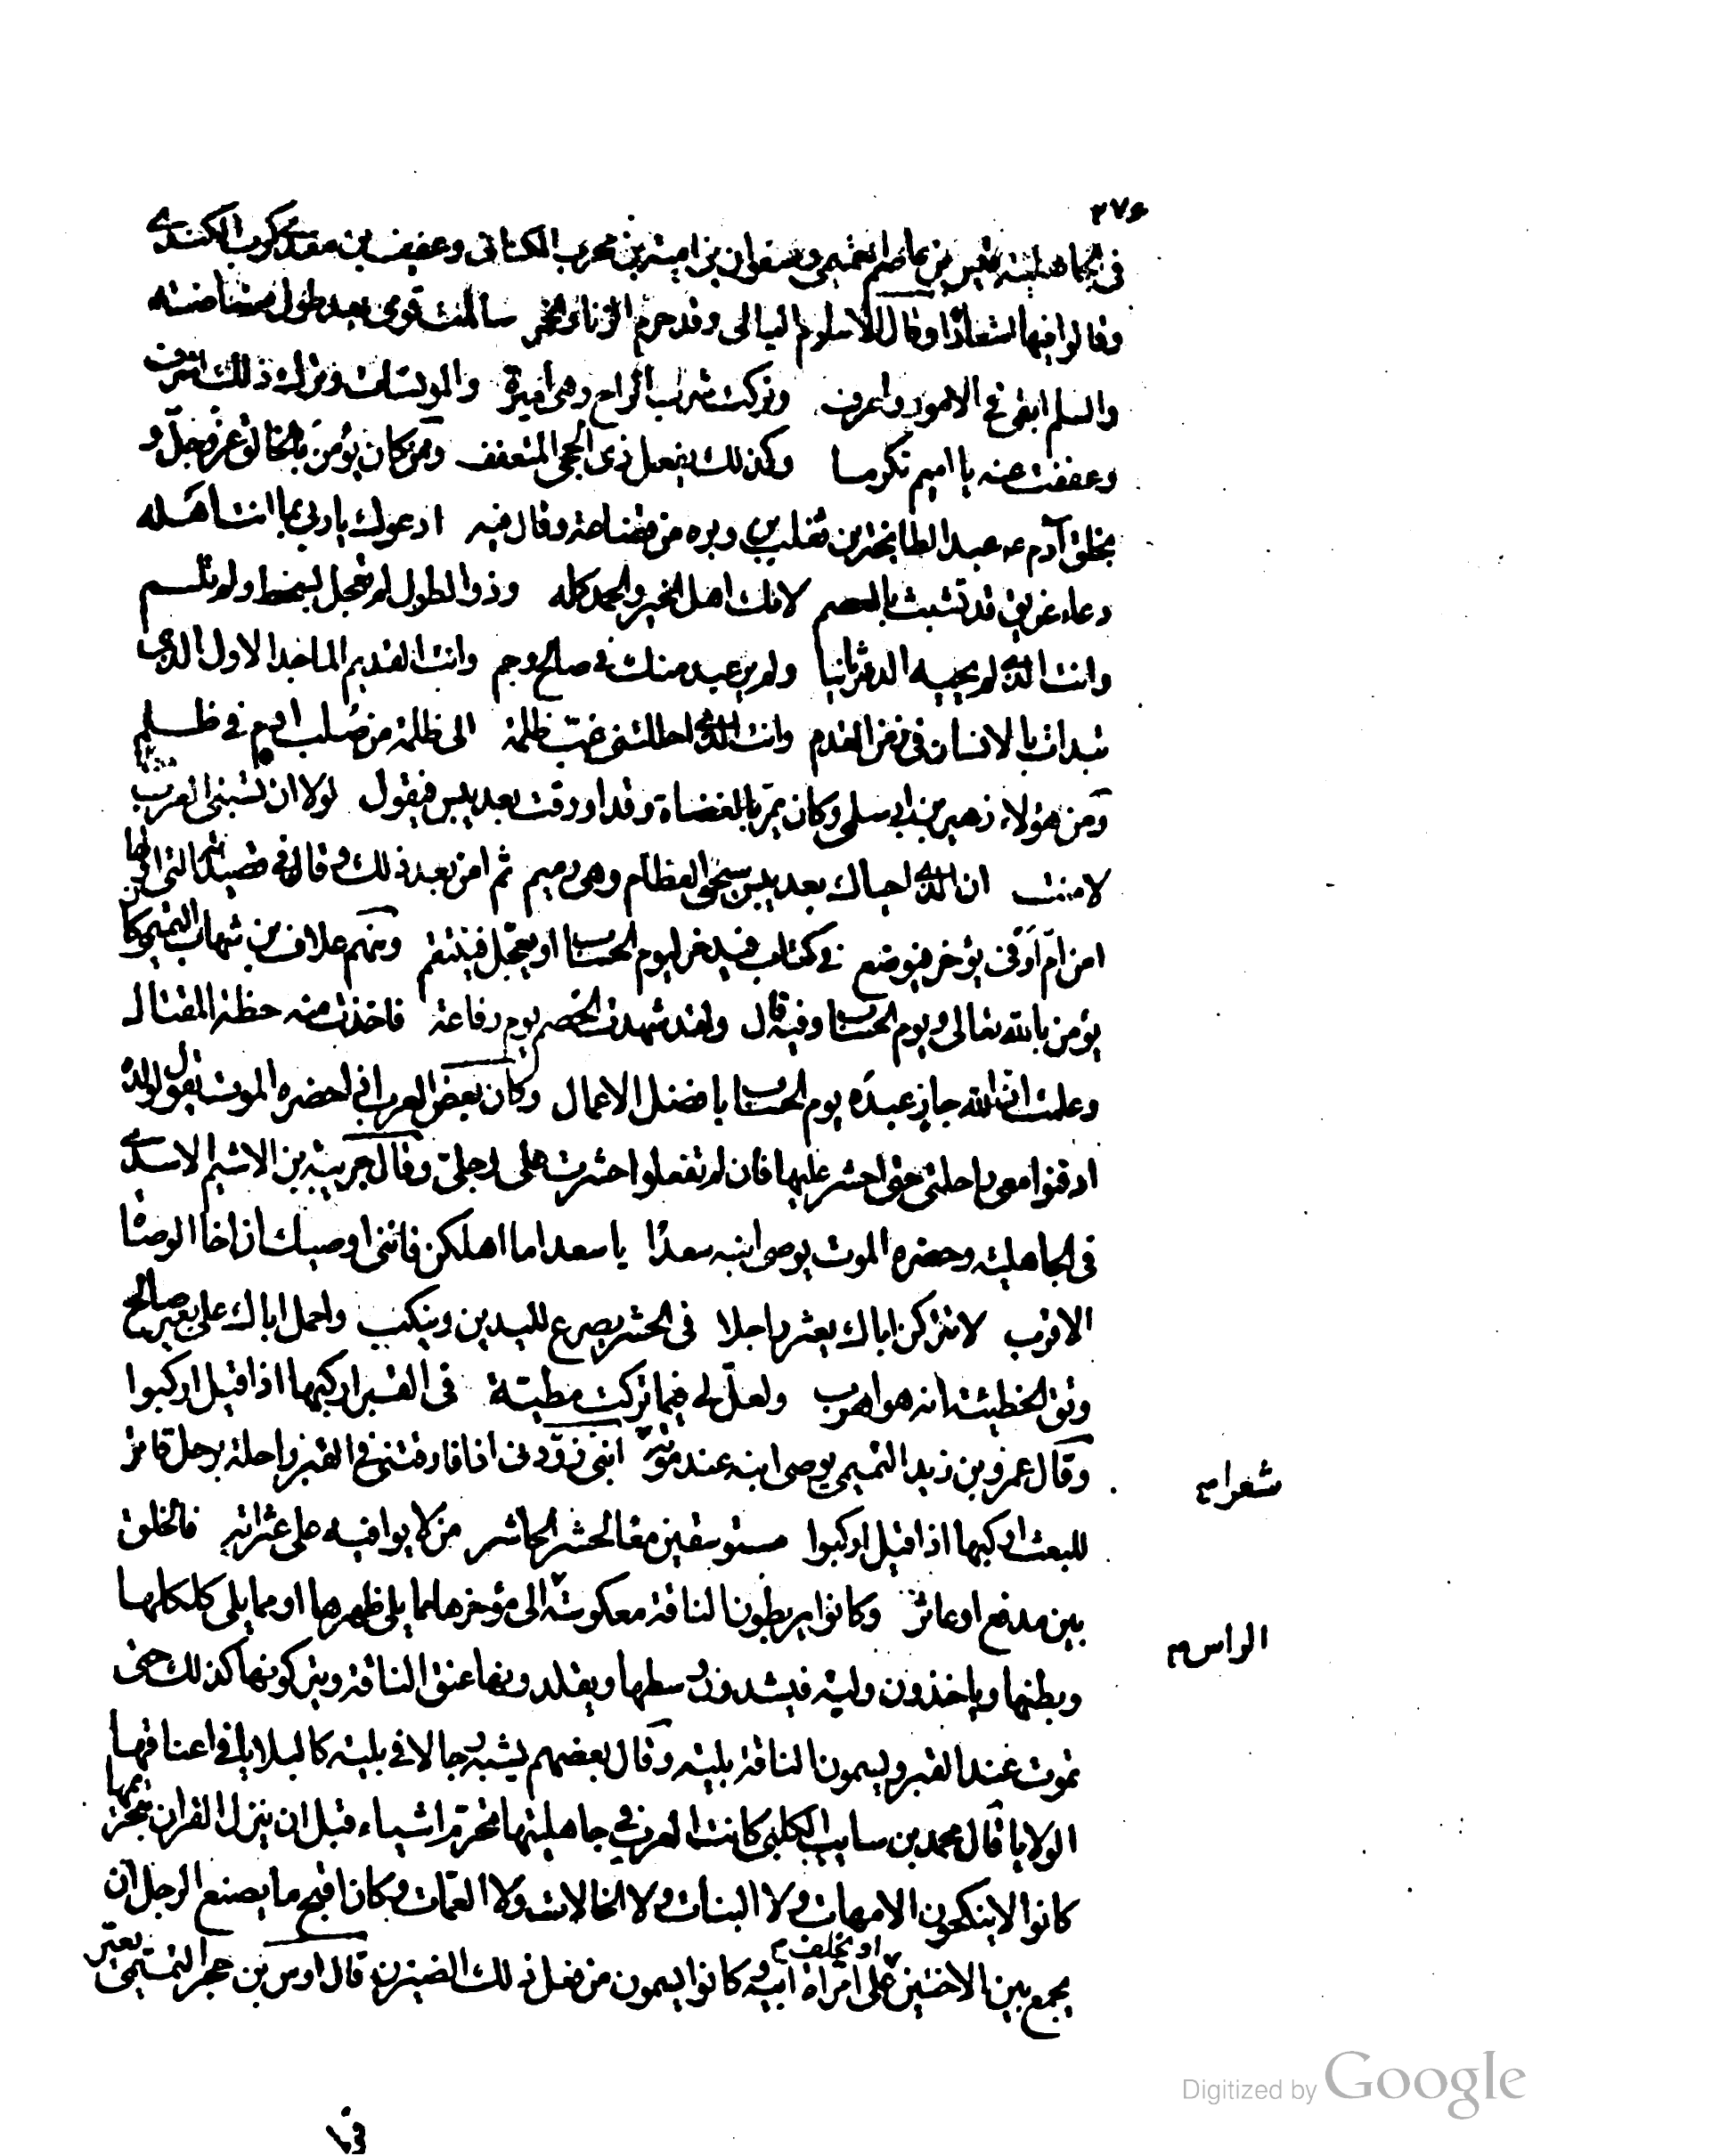 ٣٧٤
في الجاهلية قيس بن عاصم التميمي وصفوان بن امية بن محرب الكناني وعفيف بن معدي كرب الكندي
وقالوا فيها اشعارا وقال الاسلوم اليالى وقد حرم الزنا والخمر سالمت قومي بعد طول مضاضة
والسلم ابقى في الامور واعرف وتركت شرب الراح وهي اميرة والمومسات وترك ذلك اشرف
وعففت عنه يا اميم تكرما وكذلك يفعل ذي الحجى المتعفف ومن كان يؤمن بالخالق عز وجل و
بخلق آدم عم عبد الطابخة بن ثعلب بن وبره من قضاعة وقال فيه ادعوك يا ربي بما انت اهله
دعاء غريق قد تشبث بالعصم لانك اهل الخير والحمد كله وذو الطول لم تعجل بسخط ولم تلم
وانت الذي لم يحيه الدهر ثانيا ولم ير عبد منك في صالح وجم وانت القديم الماجد الاول الذي
تبدات بالانسان في زمن القدم وانت الذي احللتني غيب ظلمة الى ظلمة من صلب ادم في ظلم
ومن هؤلاء زهير بن ابي سلمى وكان يمر بالغضاة وقد اورقت بعد يبس فيقول لولا ان تسبني العرب
لامنت ان الذي احياك بعد يبس سيحيي العظام وهي رميم ثم امن بعد ذلك وقال في قصيدته التي اولها
امن ام اوفى يؤخر فيوضع في كتاب فيدخر ليوم الحساب او يعجل فينتقم ومنهم علاف بن شهاب التميمي كان
يؤمن بالله تعالى ويوم الحساب وفيه قال ولقد شهدت الخصم يوم رفاعة فاخذت منه خطة المقتال
وعلمت ان الله جاز عبده يوم الحساب بافضل الاعمال وكان بعض العرب اذا حضره الموت يقول لولده
ادفنوا معي راحلتي حتى احشر عليها فان لم تفعلوا حشرت على رجلي وقال جريبة بن الاشيم الاسدي
في الجاهلية وحضره الموت يوصي ابنه سعدا يا سعد اما اهلكن فانني اوصيك ان اخا الوصاة
الاقرب لا تتركن اباك يعثر راجلا في الحشر يصرع لليدين وينكب واحمل اباك على بعير صالح
وتق الخطيئة انه هو اهرب ولعل لي فيما تركت مطية في القبر اركبها اذا قيل اركبوا
وقال عمرو بن زيد التميمي يوصي ابنه عند موته ابني زودني اذا فارقتني في القبر راحلة برحل قاتر
شعرا م
للبعث اركبها اذا قيل اركبوا مستوسقين معا لحشر الحاشر من لا يوافيه على عثراته فالخلق
بين مدفع او عاثر وكانوا يربطون الناقة معكوسة الى مؤخرها مما يلي ظهرها او مما يلي كلكلها
الراس م
وبطنها وياخذون ولية فيشدون وسطها ويقلدونها عنق الناقة ويتركونها كذلك حتى
تموت عند القبر ويسمون الناقة بلية وقال بعضهم يشبه رجالا في بلية كالبلايا في اعناقها
الولايا قال محمد بن سايب الكلبي كانت العرب في جاهليتها تحرم اشياء قبل ان ينزل القران بتحريمها
كانوا لا ينكحون الامهات ولا البنات ولا الخالات ولا العمات وكان اقبح ما يصنع الرجل ان
او يخلف م
يجمع بين الاختين على امراة ابيه وكانوا يسمون من فعل ذلك الضيزن قال اوس بن حجر التميمي يعير
Digitized by Google